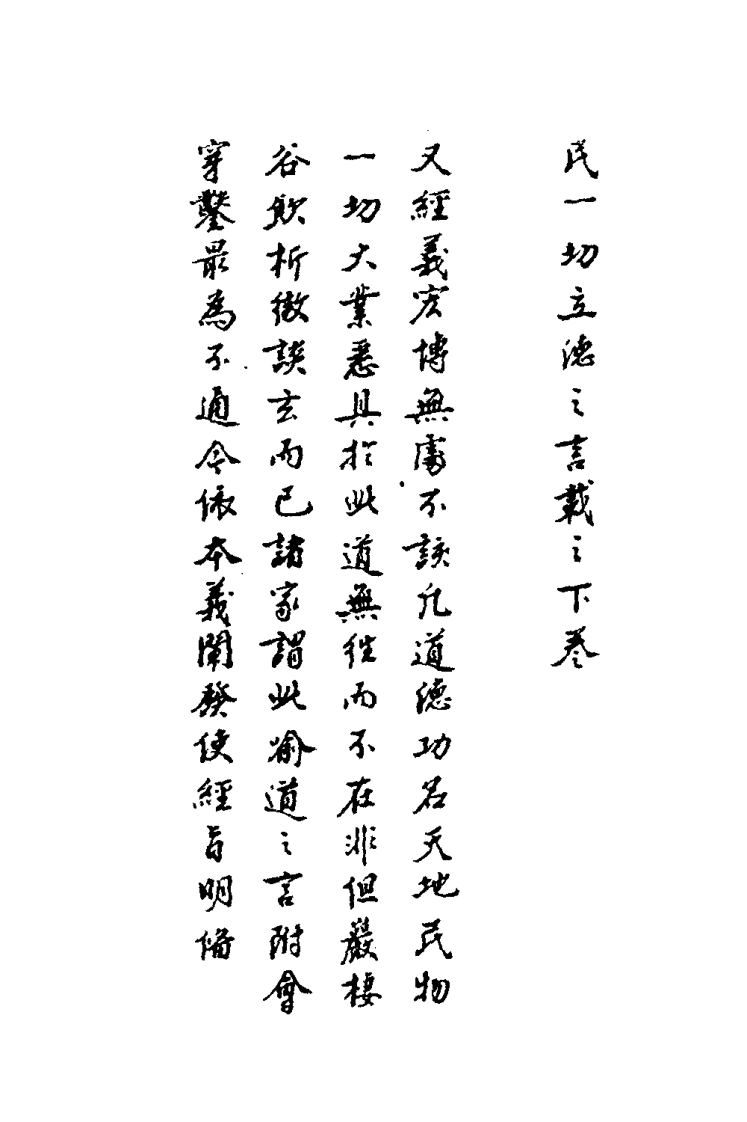 民一切立德之言載之下卷
又經義宏博無處不該凡道德功名天地民物
一切大業悉具於此道無往而不在非但巖棲
谷飲析微談玄而已諸家謂此喻道之言附會
穿鑿最為不通今依本義闡發使經旨明備